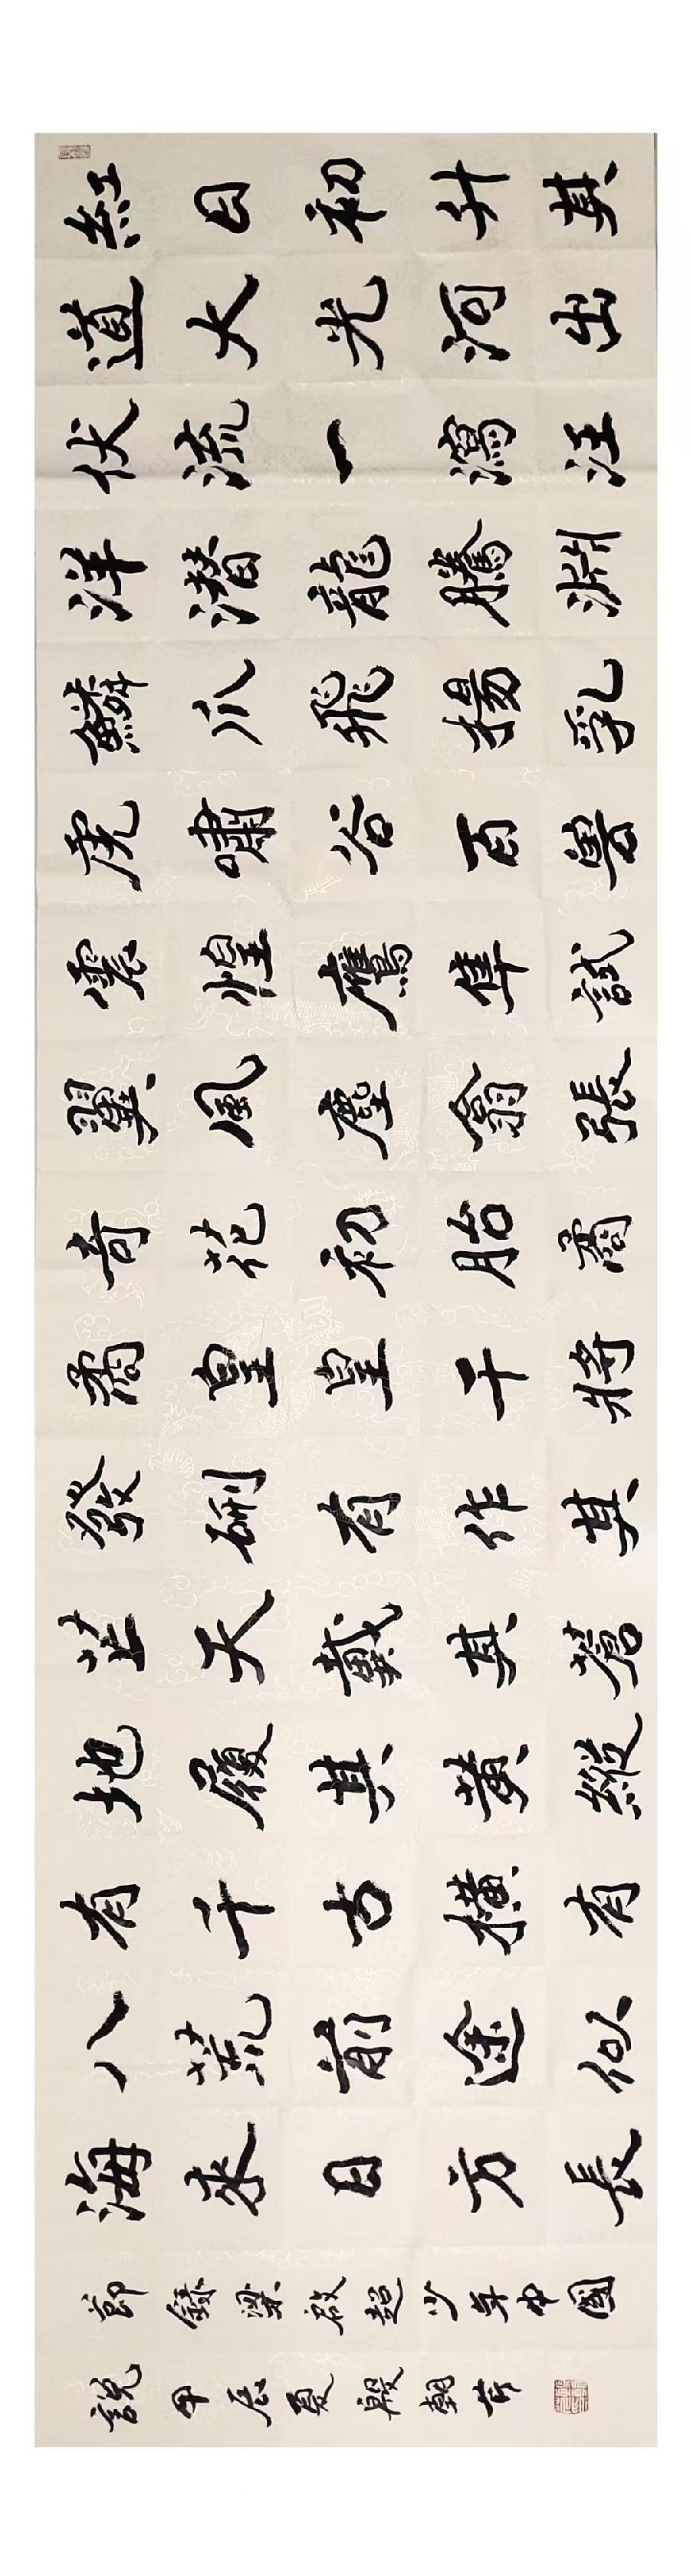 紅日初升其
道大光河出
伏流一瀉汪
洋潜龍騰淵
鱗爪飛揚乳
虎嘯谷百兽
震惶鷹隼試
翼風塵翕張
奇花初胎矞
矞皇皇干將
發硎有作其
芒天戴其蒼
地履其黃縱
有千古橫有
八荒前途似
海來日方長
節錄梁啟超少年中國
說甲辰夏殷朝